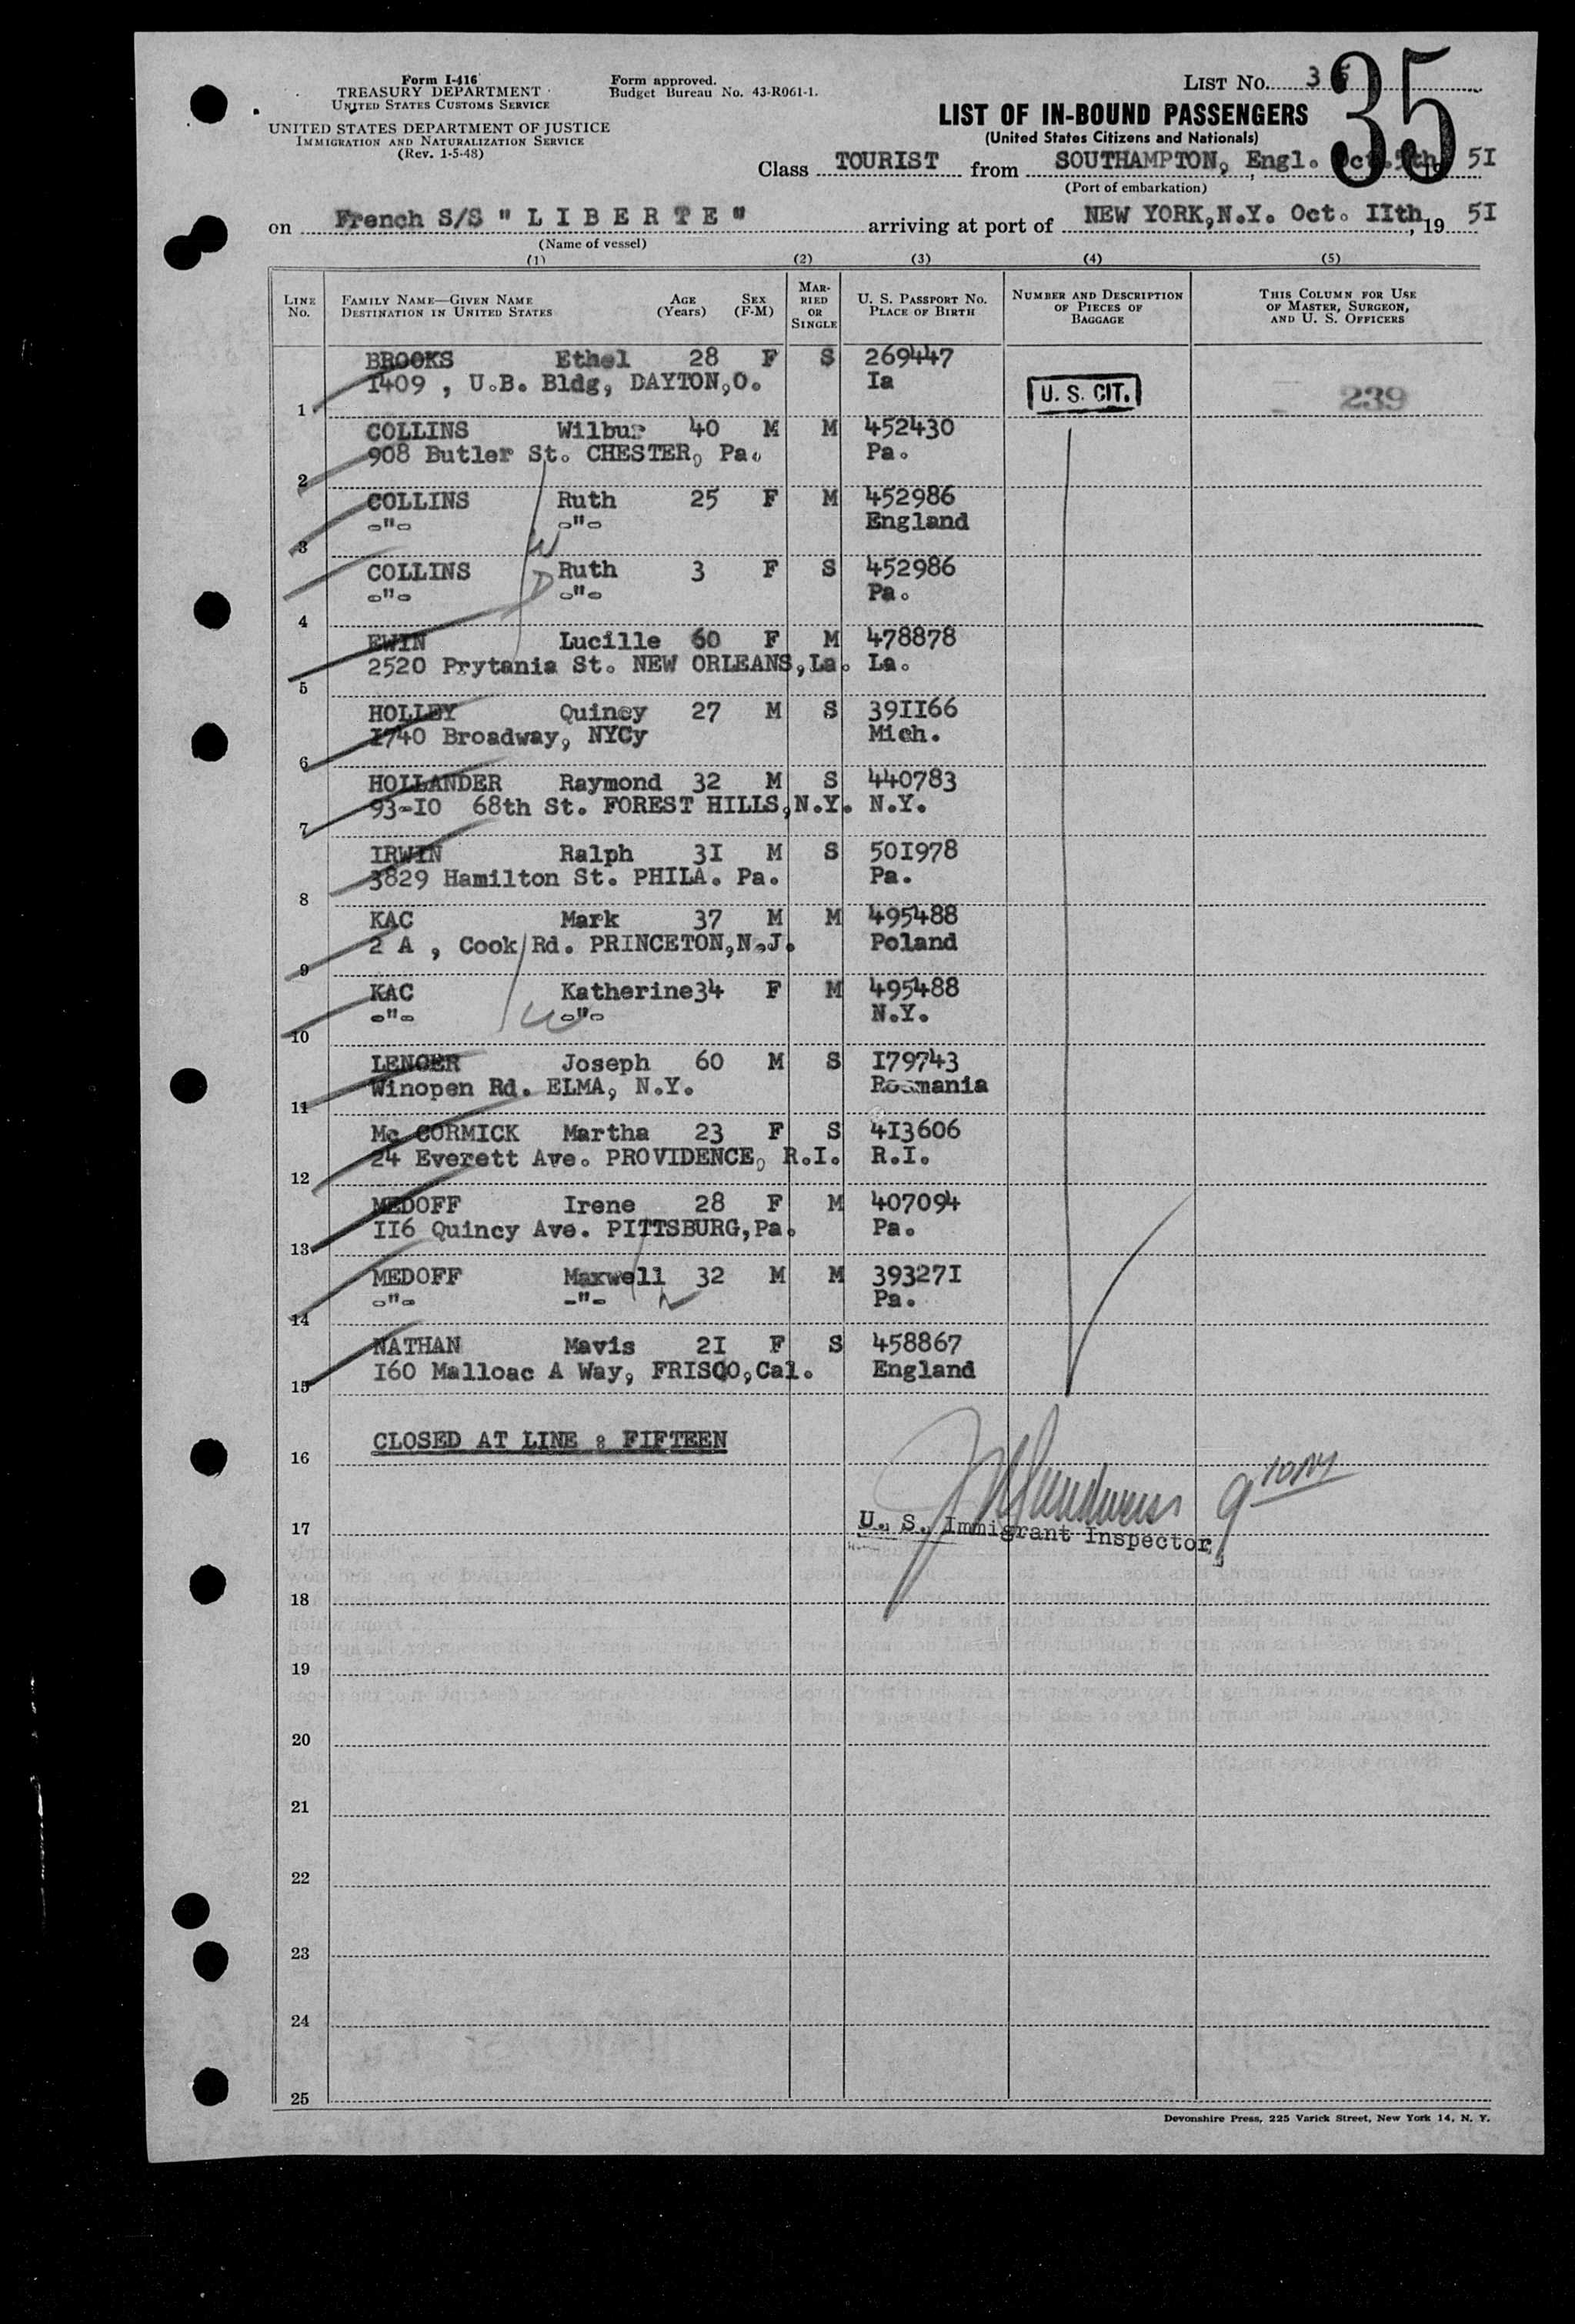 Form I-416
TREASURY DEPARTMENT
UNITED STATES CUSTOMS SERVICE
UNITED STATES DEPARTMENT OF JUSTICE
IMMIGRATION AND NATURALIZATION SERVICE
(Rev. 1-5-48)
Form approved.
Budget Bureau No. 43-R061-1.
LIST No. 35
35
LIST OF IN-BOUND PASSENGERS
(United States Citizens and Nationals)
Class TOURIST from SOUTHAMPTON, Engl. Oct. 5th 19 5I
(Port of embarkation)
on French S/S " L I B E R T E " arriving at port of NEW YORK,N.Y. Oct. IIth, 19 5I
(Name of vessel)
(1) (2) (3) (4) (5)
LINE No. FAMILY NAME—GIVEN NAME DESTINATION IN UNITED STATES AGE (Years) SEX (F-M) MARRIED OR SINGLE U. S. PASSPORT No. PLACE OF BIRTH NUMBER AND DESCRIPTION OF PIECES OF BAGGAGE THIS COLUMN FOR USE OF MASTER, SURGEON, AND U. S. OFFICERS
BROOKS Ethel 28 F S 269447
I409 , U.B. Bldg, DAYTON,O. Ia
1 U. S. CIT. 239
COLLINS Wilbur 40 M M 452430
908 Butler St. CHESTER, Pa. Pa.
2
COLLINS Ruth 25 F M 452986
-"- -"- England
3 W
COLLINS Ruth 3 F S 452986
-"- D -"- Pa.
4
EWIN Lucille 60 F M 478878
2520 Prytania St. NEW ORLEANS,La. La.
5
HOLLEY Quincy 27 M S 39II66
I740 Broadway, NYCy Mich.
6
HOLLANDER Raymond 32 M S 440783
93-IO 68th St. FOREST HILLS,N.Y. N.Y.
7
IRWIN Ralph 3I M S 50I978
3829 Hamilton St. PHILA. Pa. Pa.
8
KAC Mark 37 M M 495488
2 A , Cook Rd. PRINCETON,N.J. Poland
9
KAC Katherine 34 F M 495488
-"- W -"- N.Y.
10
LENGER Joseph 60 M S I79743
Winopen Rd. ELMA, N.Y. Roumania
11
Mc CORMICK Martha 23 F S 4I3606
24 Everett Ave. PROVIDENCE, R.I. R.I.
12
MEDOFF Irene 28 F M 407094
II6 Quincy Ave. PITTSBURG,Pa. Pa.
13
MEDOFF Maxwell 32 M M 39327I
-"- -"- Pa.
14
NATHAN Mavis 2I F S 458867
I60 Malloac A Way, FRISCO,Cal. England
15
CLOSED AT LINE : FIFTEEN
16
17 U. S. Immigrant Inspector
18
19
20
21
22
23
24
25
Devonshire Press, 225 Varick Street, New York 14, N. Y.